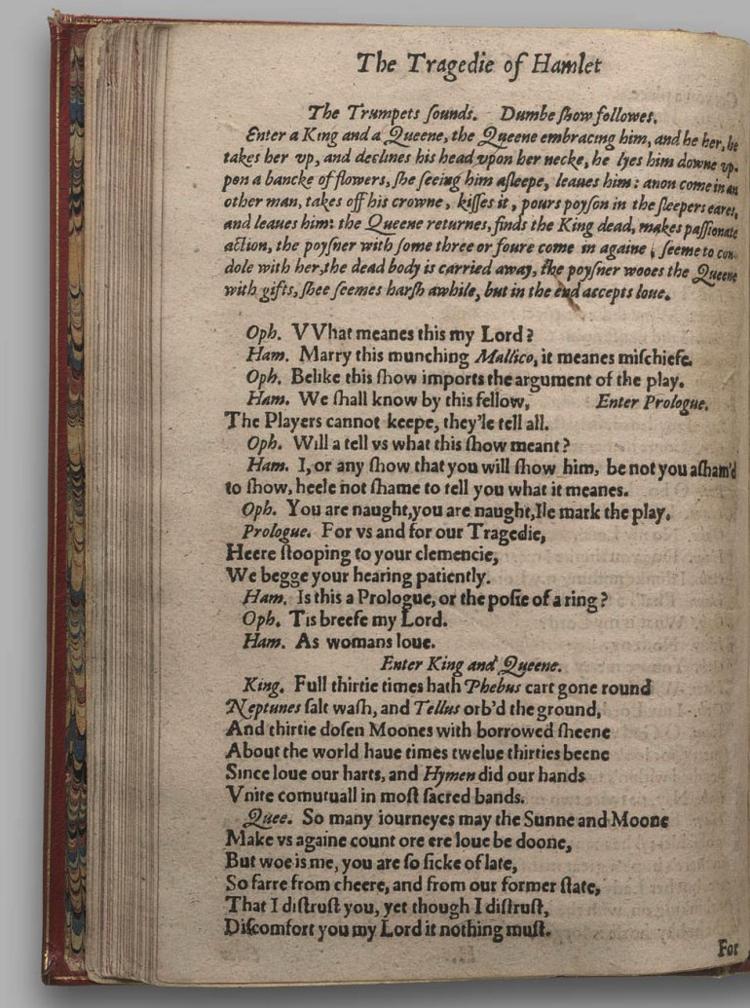 The Tragedie of Hamlet
The Trumpets ſounds. Dumbe ſhow followes.
Enter a King and a Queene, the Queene embracing him, and he her, he
takes her vp, and declines his head vpon her necke, he lyes him downe vp-
pon a bancke of flowers, ſhe ſeeing him aſleepe, leaues him: anon come in an
other man, takes off his crowne, kiſſes it, pours poyſon in the ſleepers eares,
and leaues him: the Queene returnes, finds the King dead, makes paſſionate
action, the poyſner with ſome three or foure come in againe, ſeeme to con-
dole with her, the dead body is carried away, the poyſner wooes the Queene
with gifts, ſhee ſeemes harſh awhile, but in the end accepts loue.
Oph. VVhat meanes this my Lord?
Ham. Marry this munching Mallico, it meanes miſchiefe.
Oph. Belike this ſhow imports the argument of the play.
Ham. We ſhall know by this fellow, Enter Prologue.
The Players cannot keepe, they'le tell all.
Oph. Will a tell vs what this ſhow meant?
Ham. I, or any ſhow that you will ſhow him, be not you aſham'd
to ſhow, heele not ſhame to tell you what it meanes.
Oph. You are naught, you are naught, Ile mark the play.
Prologue. For vs and for our Tragedie,
Heere ſtooping to your clemencie,
We begge your hearing patiently.
Ham. Is this a Prologue, or the poſie of a ring?
Oph. Tis breefe my Lord.
Ham. As womans loue.
Enter King and Queene.
King. Full thirtie times hath Phebus cart gone round
Neptunes ſalt waſh, and Tellus orb'd the ground,
And thirtie doſen Moones with borrowed ſheene
About the world haue times twelue thirties beene
Since loue our harts, and Hymen did our hands
Vnite comutuall in moſt ſacred bands.
Quee. So many iourneyes may the Sunne and Moone
Make vs againe count ore ere loue be doone,
But woe is me, you are ſo ſicke of late,
So farre from cheere, and from our former ſtate,
That I diſtruſt you, yet though I diſtruſt,
Diſcomfort you my Lord it nothing muſt.
For